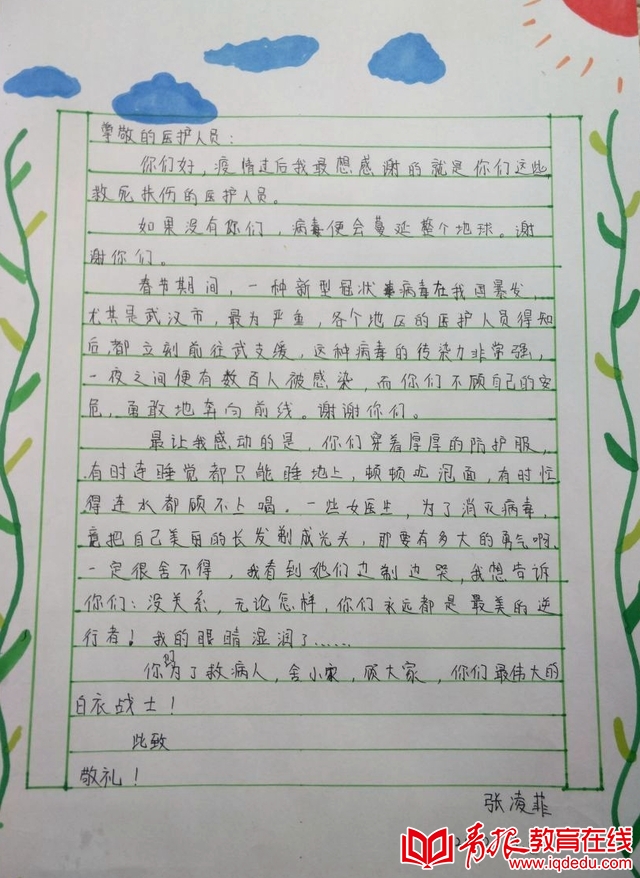 尊敬的医护人员：
你们好，疫情过后我最想感谢的就是你们这些
救死扶伤的医护人员。
如果没有你们，病毒便会蔓延整个地球。谢
谢你们。
春节期间，一种新型冠状病毒在我国暴发，
尤其是武汉市，最为严重，各个地区的医护人员得知
后，都立刻前往武支援，这种病毒的传染力非常强，
一夜之间便有数百人被感染，而你们不顾自己的安
危，勇敢地奔向前线。谢谢你们。
最让我感动的是，你们穿着厚厚的防护服，
有时连睡觉都只能睡地上，顿顿吃泡面，有时忙
得连水都顾不上喝。一些女医生，为了消灭病毒，
竟把自己美丽的长发剃成光头，那要有多大的勇气啊，
一定很舍不得，我看到她们边剃边哭，我想告诉
你们：没关系，无论怎样，你们永远都是最美的逆
行者！我的眼睛湿润了……
你们为了救病人，舍小家，顾大家，你们最伟大的
白衣战士！
此致
敬礼！
张凌菲
青报教育在线
www.iqdedu.com